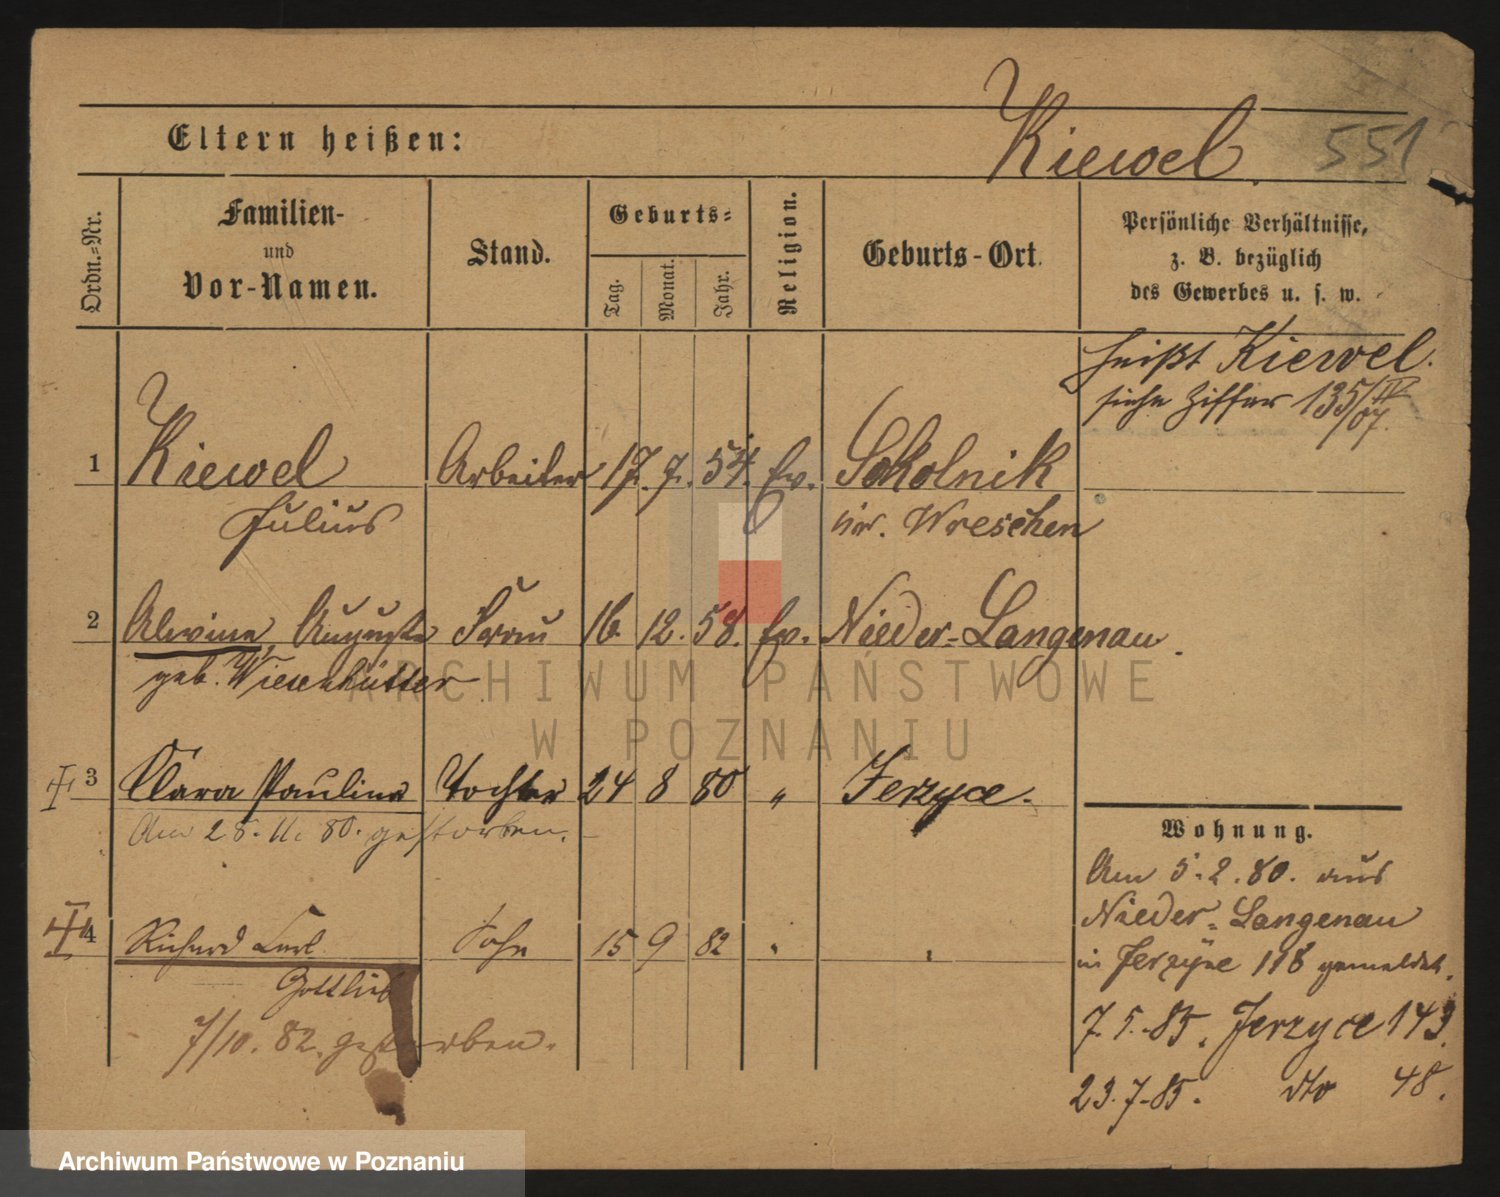 Eltern heißen:
Kiewel.
551
Ordn.-Nr.
Familien-
und
Vor-Namen.
Stand.
Geburts-
Tag.
Monat.
Jahr.
Religion.
Geburts-Ort.
Persönliche Verhältnisse,
z. B. bezüglich
des Gewerbes u. s. w.
heißt Kiewel.
siehe Ziffer 135/IV 07.
1 Kiewel Arbeiter 17. 7. 54. Ev. Sokolnik
Julius Kr. Wreschen
2 Alwine, Auguste Frau 16. 12. 58. Ev. Nieder-Langenau.
geb. Wiesenhütter
3 Clara Pauline Tochter 24 8 80 " Jerzyce.
Am 28. 11. 80. gestorben.
4 Richard Carl Sohn 15 9 82 " "
Gottlieb
7/10. 82. gestorben.
Wohnung.
Am 5.2.80. aus
Nieder-Langenau
in Jerzyce 118 gemeldet.
7.5.85. Jerzyce 143.
23.7.85. dto 48.
ARCHIWUM PAŃSTWOWE
W POZNANIU
Archiwum Państwowe w Poznaniu